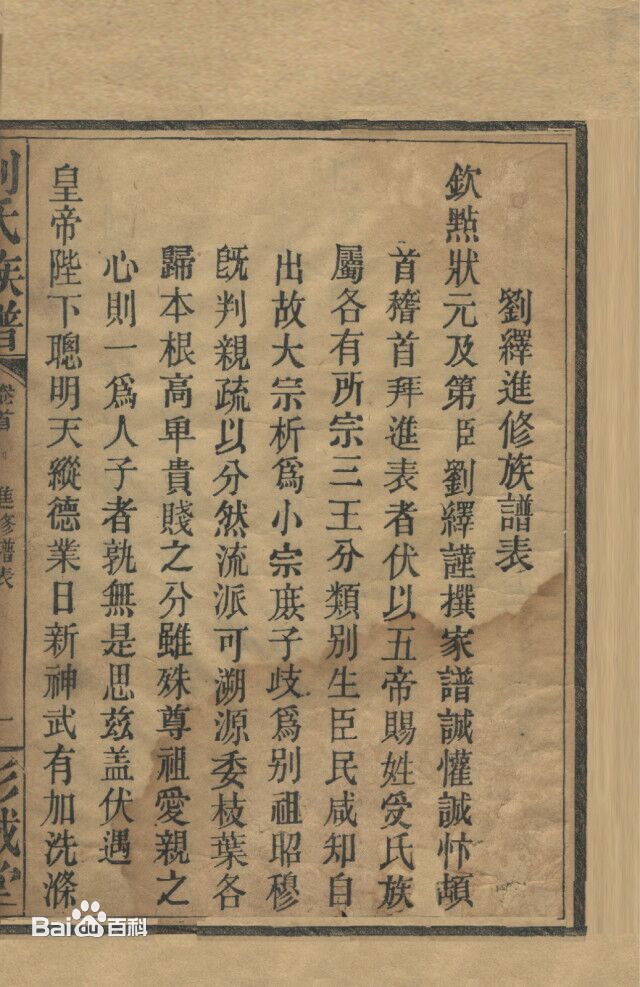 劉繹進修族譜表
欽㸃狀元及第臣劉繹謹撰家譜誠懽誠忭頓
首稽首拜進表者伏以五帝賜姓受氏族
屬各有所宗三王分類別生臣民咸知自
出故大宗析爲小宗庶子歧爲別祖昭穆
旣判親疏以分然流派可溯源委枝葉各
歸本根高卑貴賤之分雖殊尊祖愛親之
心則一爲人子者孰無是思玆盖伏遇
皇帝陛下聰明天縱德業日新神武有加洗滌
劉氏族譜 卷首 進修譜表 一 彭城堂
Bai百科